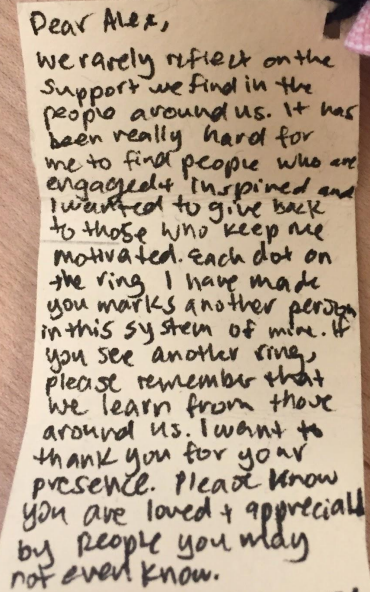 Dear Alex,
we rarely reflect on the
support we find in the
people around us. It has
been really hard for
me to find people who are
engaged + inspired and
I wanted to give back
to those who keep me
motivated. Each dot on
the ring I have made
you marks another person
in this system of mine. If
you see another ring,
please remember that
we learn from those
around us. I want to
thank you for your
presence. Please know
you are loved + appreciated
by people you may
not even know.